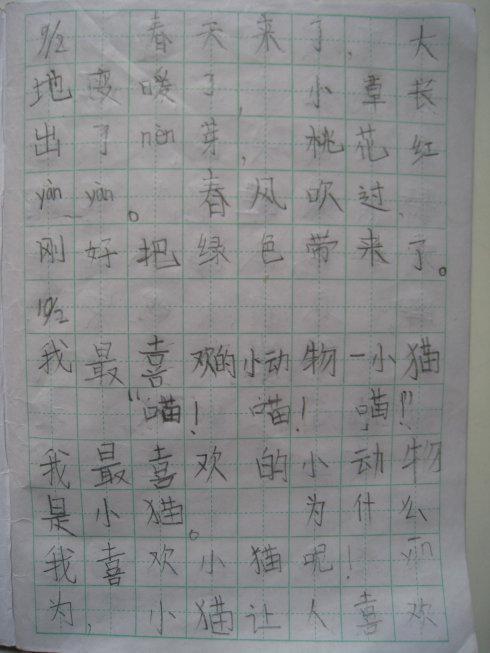 9/2 春天来了，大
地变暖了，小草长
出了nèn芽，桃花红
yàn yàn。春风吹过，
刚好把绿色带来了。
10/2
我最喜欢的小动物—小猫
“喵！喵！喵！”
我最喜欢的小动物
是小猫。为什么
我喜欢小猫呢！yīn
为，小猫让人喜欢